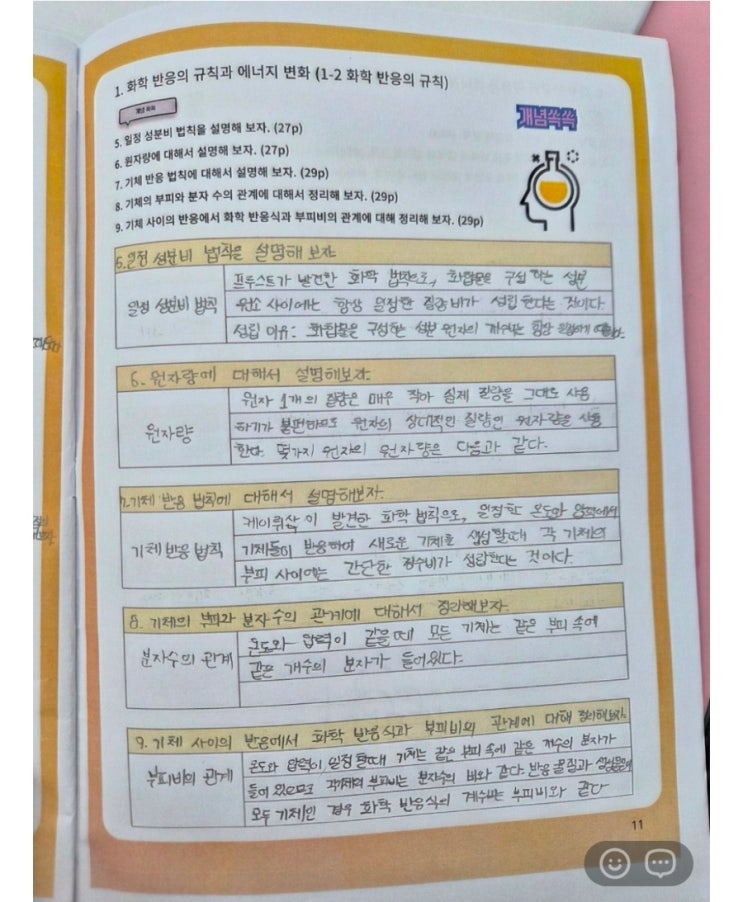 1. 화학 반응의 규칙과 에너지 변화 (1-2 화학 반응의 규칙)
개념쏙쏙
5. 일정 성분비 법칙을 설명해 보자. (27p)
6. 원자량에 대해서 설명해 보자. (27p)
7. 기체 반응 법칙에 대해서 설명해 보자. (29p)
8. 기체의 부피와 분자 수의 관계에 대해서 정리해 보자. (29p)
9. 기체 사이의 반응에서 화학 반응식과 부피비의 관계에 대해 정리해 보자. (29p)
5.일정 성분비 법칙을 설명해 보자.
일정 성분비 법칙
프루스트가 발견한 화학 법칙으로, 화합물을 구성 하는 성분
원소 사이에는 항상 일정한 질량비가 성립 한다는 것이다.
성립 이유: 화합물을 구성하는 성분 원자의 개수비는 항상 일정하기
6. 원자량에 대해서 설명해보자.
원자량
원자 1개의 질량은 매우 작아 실제 질량을 그대로 사용
하기가 불편하므로 원자의 상대적인 질량인 원자량을 사용
한다. 몇가지 원자의 원자량은 다음과 같다.
7.기체 반응 법칙에 대해서 설명해보자.
기체 반응 법칙
게이뤼삭이 발견한 화학 법칙으로, 일정한 온도와 압력에서
기체들이 반응하여 새로운 기체를 생성 할때 각 기체의
부피 사이에는 간단한 정수비가 성립한다는 것이다.
8. 기체의 부피와 분자수의 관계에 대해서 정리해보자.
분자수의 관계
온도와 압력이 같을 때 모든 기체는 같은 부피 속에
같은 개수의 분자가 들어있다.
9. 기체 사이의 반응에서 화학 반응식과 부피비의 관계에 대해 정리해보자.
부피비의 관계
온도와 압력이 일정 할때 기체는 같은 부피 속에 같은 개수의 분자가
들어 있으므로 각기체의 부피비는 분자수의 비와 같다. 반응 물질과 생성물이
모두 기체인 경우 화학 반응식의 계수비는 부피비와 같다
11